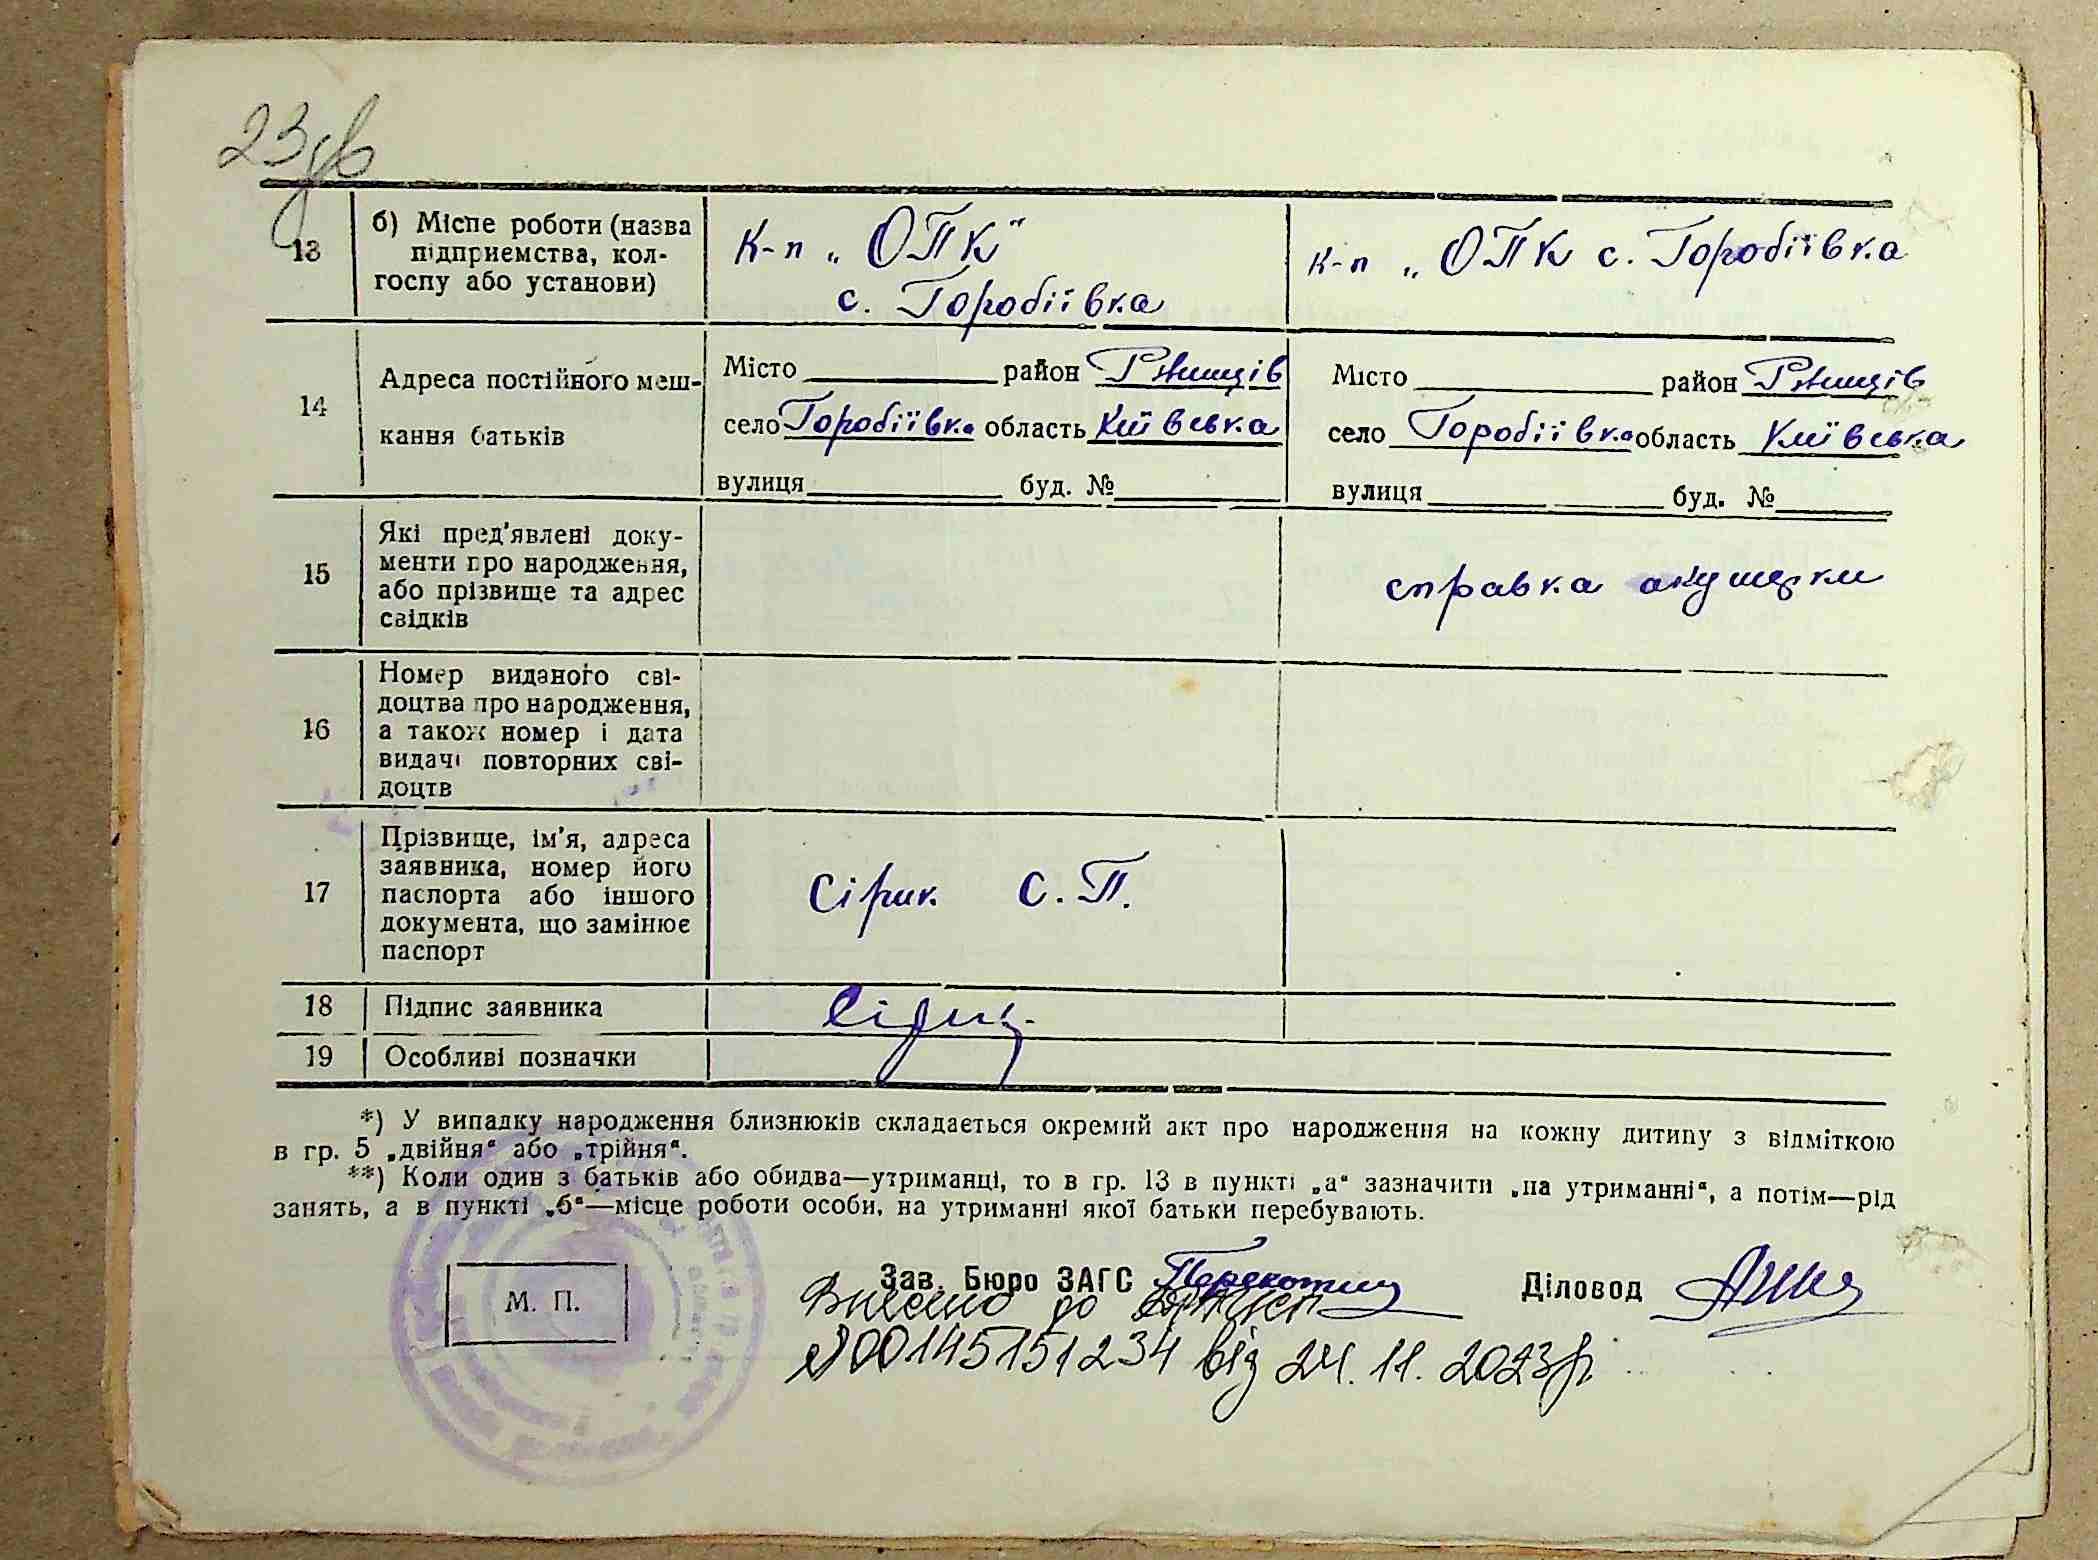 23зв
13 б) Місце роботи (назва підприємства, колгоспу або установи)
к-п „ОПК"
с. Горобіївка
к-п „ОПК с. Горобіївка
14 Адреса постійного мешкання батьків
Місто район Ржищів
село Горобіївка область Київська
вулиця буд. №
Місто район Ржищів
село Горобіївка область Київська
вулиця буд. №
15 Які пред'явлені документи про народження, або прізвище та адрес свідків
справка акушерки
16 Номер виданого свідоцтва про народження, а також номер і дата видачі повторних свідоцтв
17 Прізвище, ім'я, адреса заявника, номер його паспорта або іншого документа, що замінює паспорт
Сірик С. П.
18 Підпис заявника
Сірик
19 Особливі позначки
*) У випадку народження близнюків складається окремий акт про народження на кожну дитину з відміткою
в гр. 5 „двійня" або „трійня".
**) Коли один з батьків або обидва—утриманці, то в гр. 13 в пункті „а" зазначити „на утриманні", а потім—рід
занять, а в пункті „б"—місце роботи особи, на утриманні якої батьки перебувають.
М. П.
Зав. Бюро ЗАГС
Діловод
Внесено до
№00145151234 від 24.11.2023р.